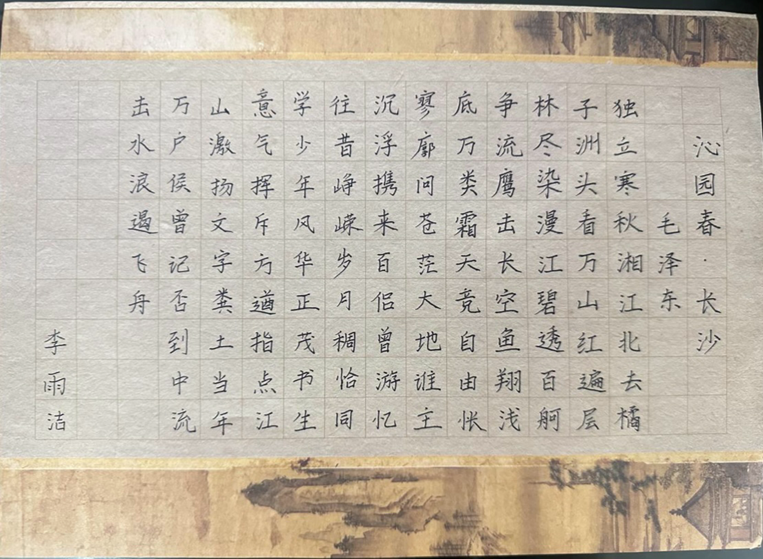 沁园春·长沙
毛泽东
独立寒秋湘江北去橘
子洲头看万山红遍层
林尽染漫江碧透百舸
争流鹰击长空鱼翔浅
底万类霜天竞自由怅
寥廓问苍茫大地谁主
沉浮携来百侣曾游忆
往昔峥嵘岁月稠恰同
学少年风华正茂书生
意气挥斥方遒指点江
山激扬文字粪土当年
万户侯曾记否到中流
击水浪遏飞舟
李雨洁